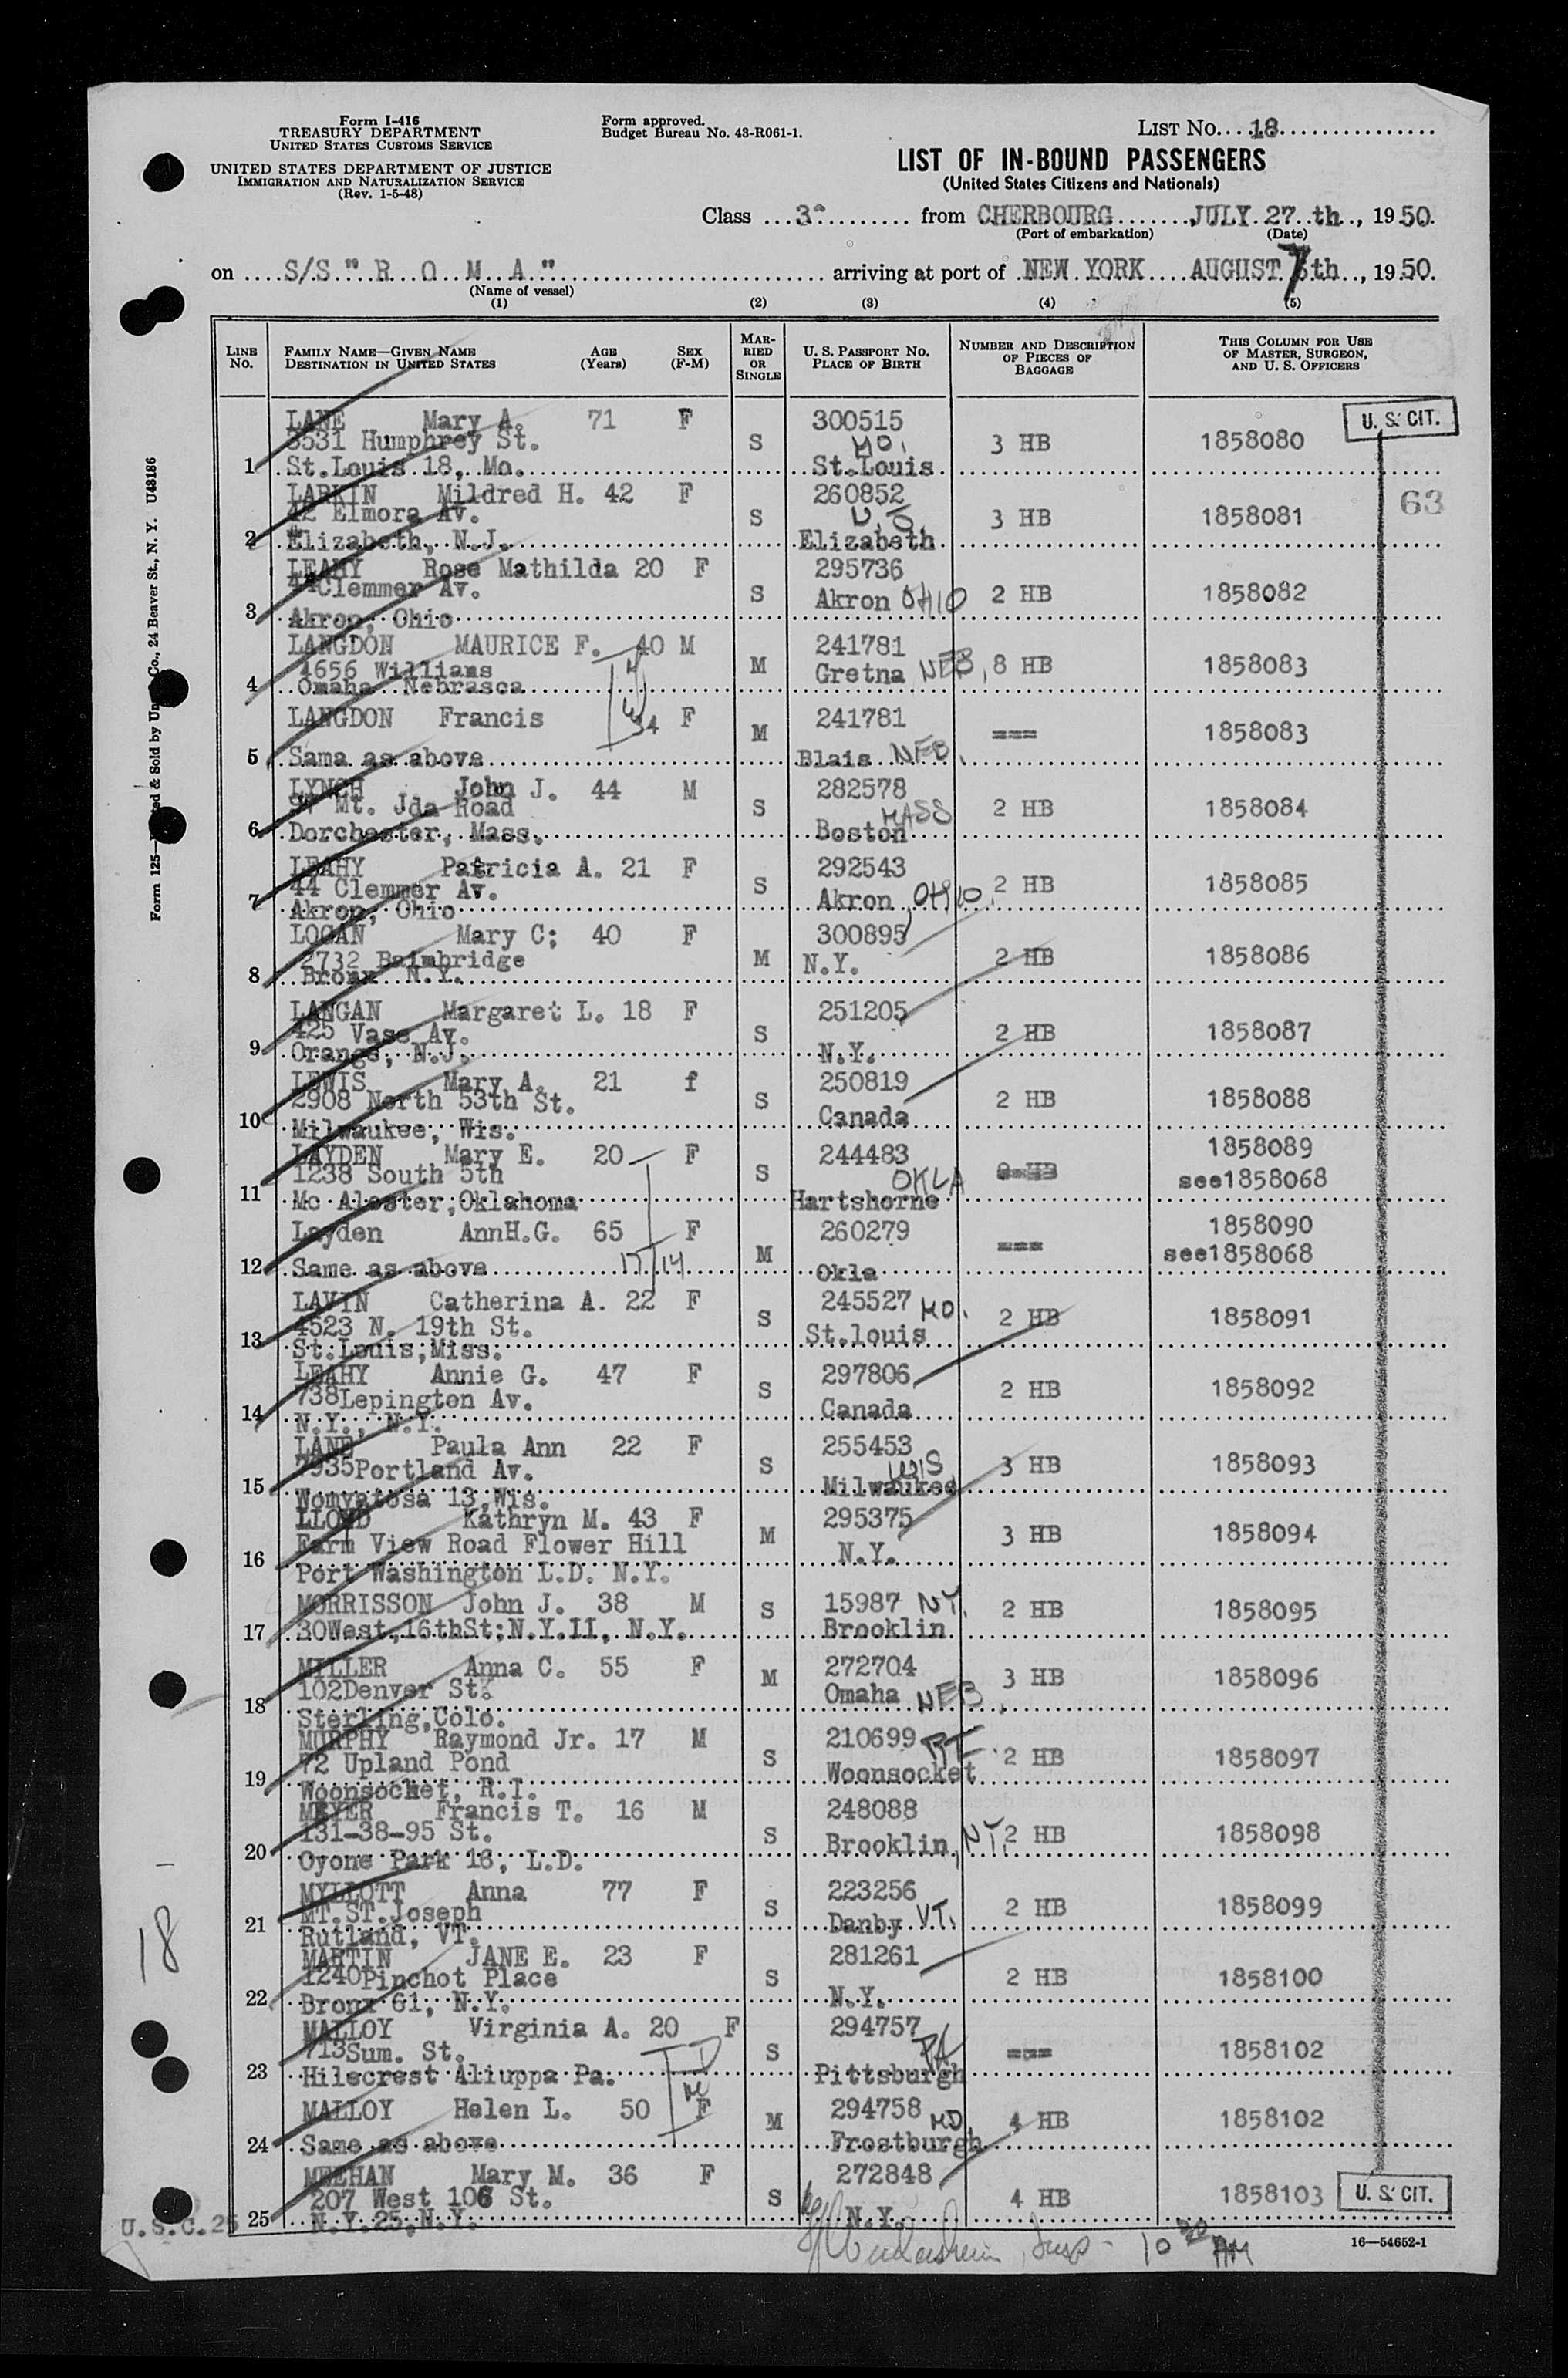 Form I-416
TREASURY DEPARTMENT
UNITED STATES CUSTOMS SERVICE
UNITED STATES DEPARTMENT OF JUSTICE
IMMIGRATION AND NATURALIZATION SERVICE
(Rev. 1-5-48)
Form approved.
Budget Bureau No. 43-R061-1.
LIST NO. 18
LIST OF IN-BOUND PASSENGERS
(United States Citizens and Nationals)
Class 3ª from CHERBOURG, JULY 27 th, 1950.
(Port of embarkation) (Date)
on S/S "R O M A" arriving at port of NEW YORK AUGUST 7th, 1950.
(Name of vessel)
(1) (2) (3) (4) (5)
LINE NO.
FAMILY NAME—GIVEN NAME
DESTINATION IN UNITED STATES
AGE (Years)
SEX (F-M)
MARRIED OR SINGLE
U. S. PASSPORT NO.
PLACE OF BIRTH
NUMBER AND DESCRIPTION OF PIECES OF BAGGAGE
THIS COLUMN FOR USE OF MASTER, SURGEON, AND U. S. OFFICERS
U. S. CIT.
63
LANE Mary A. 71 F 300515
3531 Humphrey St. S MO. 3 HB 1858080
1 St.Louis 18, Mo. St.Louis
LARKIN Mildred H. 42 F 260852
42 Elmora Av. S 3 HB 1858081
2 Elizabeth, N.J. Elizabeth
LEAHY Rose Mathilda 20 F 295736
44Clemmer Av. S Akron OHIO 2 HB 1858082
3 Akron, Ohio
LANGDON MAURICE F. 40 M 241781
4656 Williams M Gretna NEB. 8 HB 1858083
4 Omaha Nebrasca
LANGDON Francis 34 F 241781
M === 1858083
5 Sama as above Blais NEB.
LYNCH John J. 44 M 282578
97 Mt. Jda Road S MASS 2 HB 1858084
6 Dorchester, Mass. Boston
LEAHY Patricia A. 21 F 292543
44 Clemmer Av. S Akron, OHIO. 2 HB 1858085
7 Akron, Ohio
LOGAN Mary C; 40 F 300895
2732 Baimbridge M N.Y. 2 HB 1858086
8 Bronx N.Y.
LANGAN Margaret L. 18 F 251205
425 Vase Av. S 2 HB 1858087
9 Orange, N.J. N.Y.
LEWIS Mary A. 21 f 250819
2908 North 53th St. S 2 HB 1858088
10 Milwaukee, Wis. Canada
LAYDEN Mary E. 20 F 244483 1858089
1238 South 5th S OKLA see1858068
11 Mc Alester;Oklahoma Hartshorne
Layden AnnH.G. 65 F 260279 1858090
M === see1858068
12 Same as above 17/14 Okla
LAVIN Catherina A. 22 F 245527 MO.
4523 N. 19th St. S St.louis 2 HB 1858091
13 St.Louis;Miss.
LEAHY Annie G. 47 F 297806
738Lepington Av. S 2 HB 1858092
14 N.Y., N.Y. Canada
LANE Paula Ann 22 F 255453
7935Portland Av. S WIS 3 HB 1858093
15 Womvatosa 13,Wis. Milwaukee
LLOYD Kathryn M. 43 F 295375
Farm View Road Flower Hill M 3 HB 1858094
16 Port Washington L.D. N.Y. N.Y.
MORRISSON John J. 38 M S 15987 N.Y. 2 HB 1858095
17 30West,16thSt;N.Y.II, N.Y. Brooklin
MILLER Anna C. 55 F 272704
102Denver St. M Omaha NEB. 3 HB 1858096
18 Sterling,Colo.
MURPHY Raymond Jr. 17 M 210699 R.I.
72 Upland Pond S Woonsocket 2 HB 1858097
19 Woonsocket, R.I.
MEYER Francis T. 16 M 248088
131-38-95 St. S Brooklin, N.Y. 2 HB 1858098
20 Oyone Park 16, L.D.
MYLLOTT Anna 77 F 223256
MT.ST.Joseph S Danby V.T. 2 HB 1858099
21 Rutland, VT.
MARTIN JANE E. 23 F 281261
1240Pinchot Place S 2 HB 1858100
22 Bronx 61, N.Y. N.Y.
MALLOY Virginia A. 20 F 294757
713Sum. St. S PA === 1858102
23 Hilecrest Aliuppa Pa. Pittsburgh
MALLOY Helen L. 50 F 294758
M MD 4 HB 1858102
24 Same as above Frostburgh
MEEHAN Mary M. 36 F 272848
207 West 106 St. S 4 HB 1858103 U. S. CIT.
25 N.Y.25,N.Y. N.Y.
U.S.C.25
10 30 AM
16—54652-1
18
24 Beaver St., N. Y. U48186
Form 125